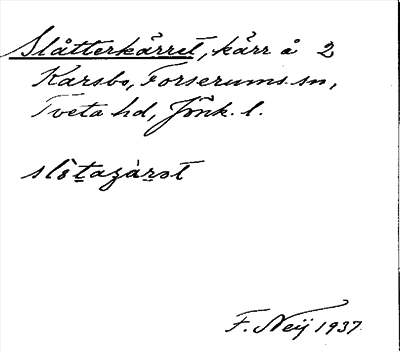 Slåtterkärret, kärr å 2
Karsbo, Forserums sn,
Tveta hd, Jönk. l.
F. Neij 1937.